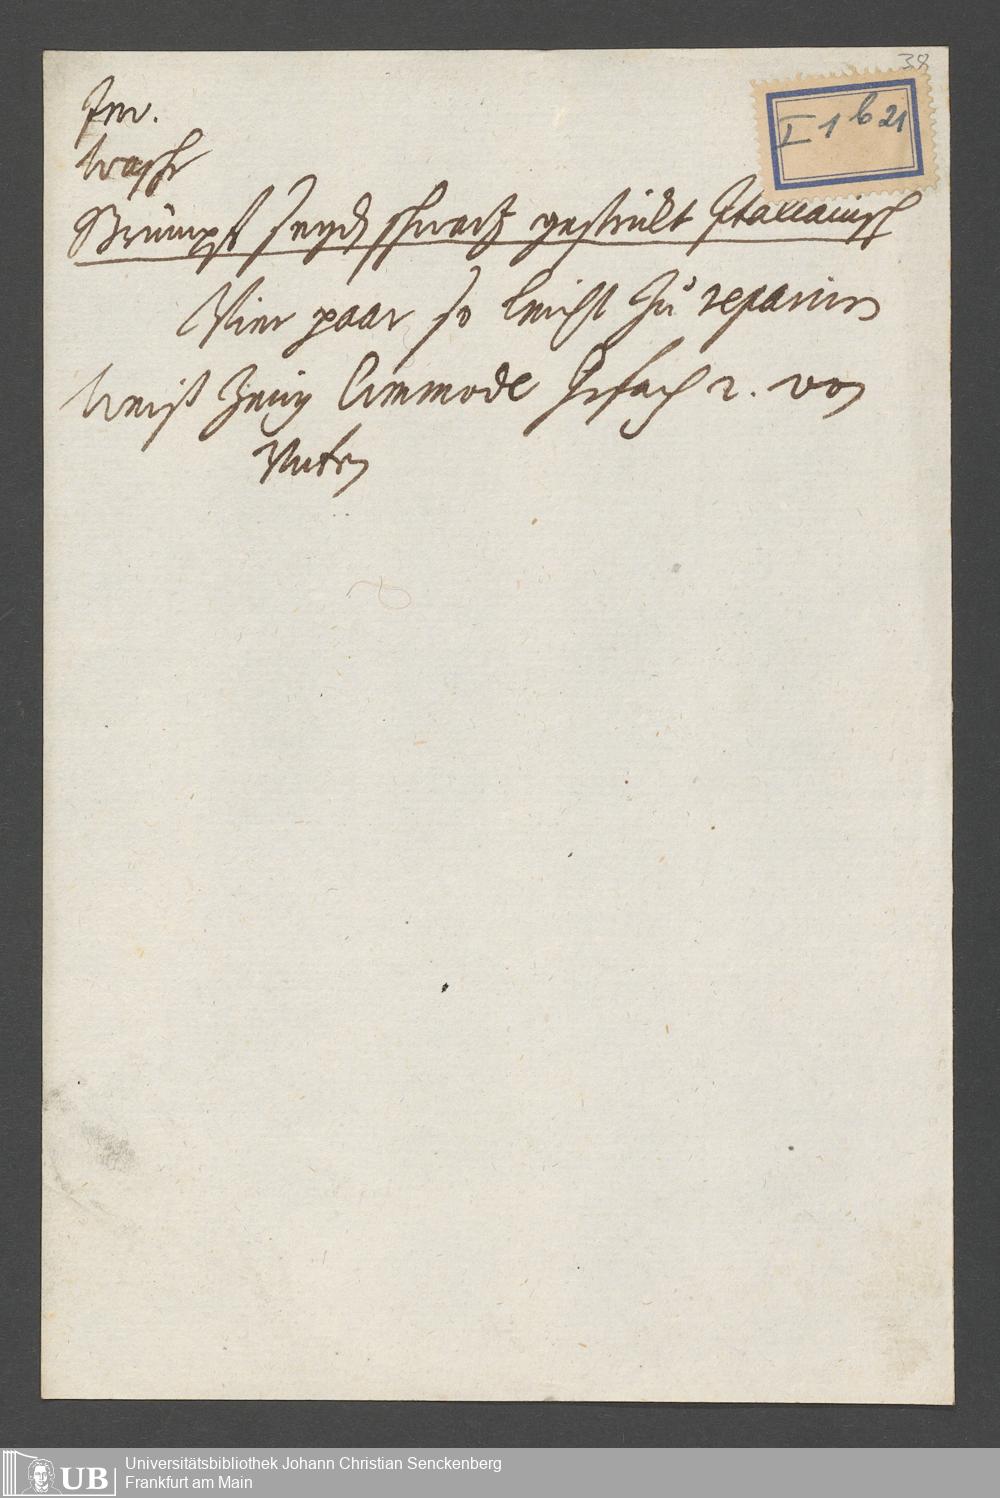 38
I 1 b 21
Inv.
Wasche
Strümpf seyd schwartz gestrükt Italianisch
Vier paar so leicht zu reparirn
Weiß Zeug Commode Gefach 2. von
Unten
UB
Universitätsbibliothek Johann Christian Senckenberg
Frankfurt am Main